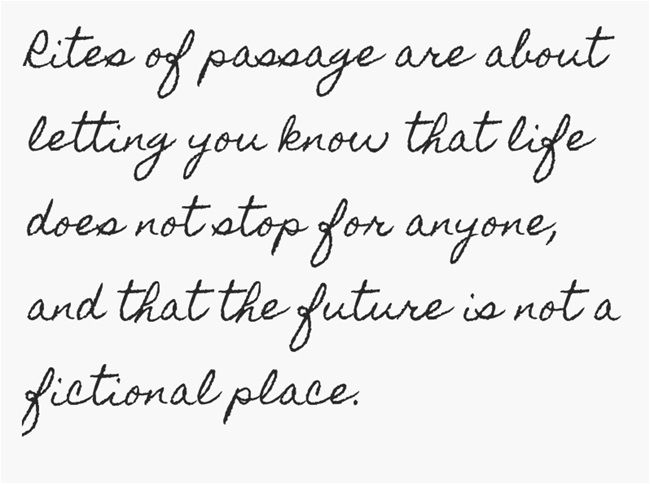 Rites of passage are about
letting you know that life
does not stop for anyone,
and that the future is not a
fictional place.